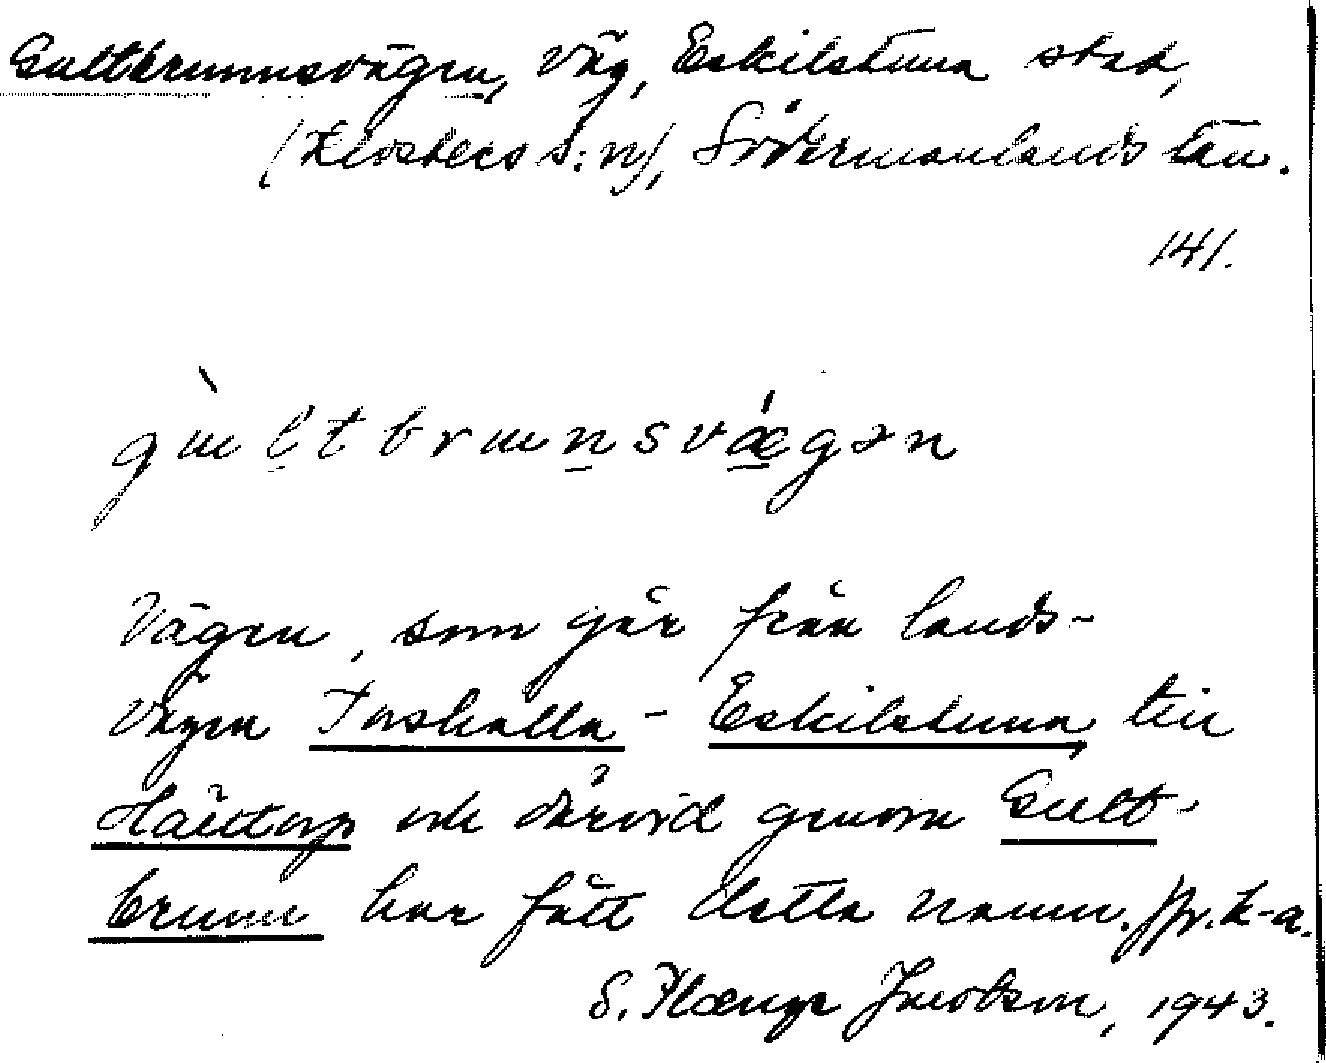 Gultbrunnsvägen, väg, Eskilstuna stad,
(Klosters s:n), Södermanlands län.
141.
gultbrunsvægən
Vägen, som går från lands-
vägen Torshalla - Eskilstuna till
och därvid genom Gult-
brunn har fått detta namn. jfr. k-a.
S. Jacobson, 1943.